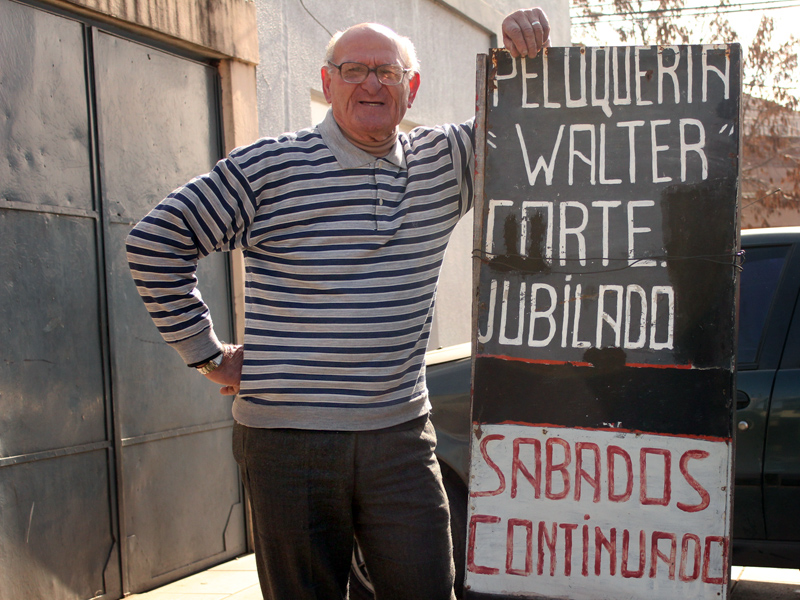 PELUQUERIA
"WALTER"
CORTE.
JUBÍLADO
SABADOS
CONTÍNUADO